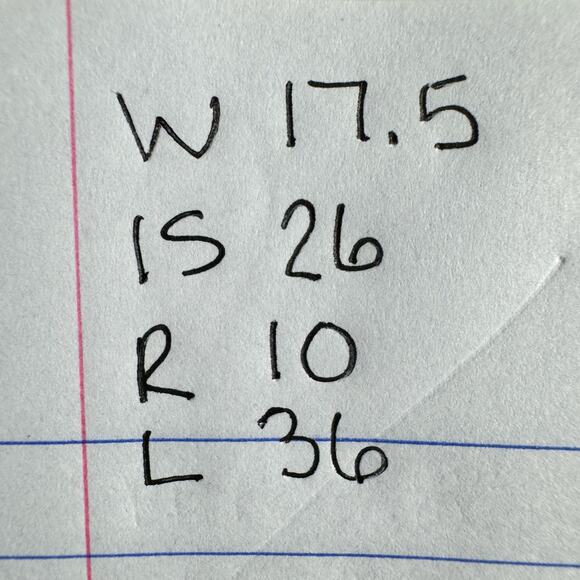 W 17.5
IS 26
R 10
L 36